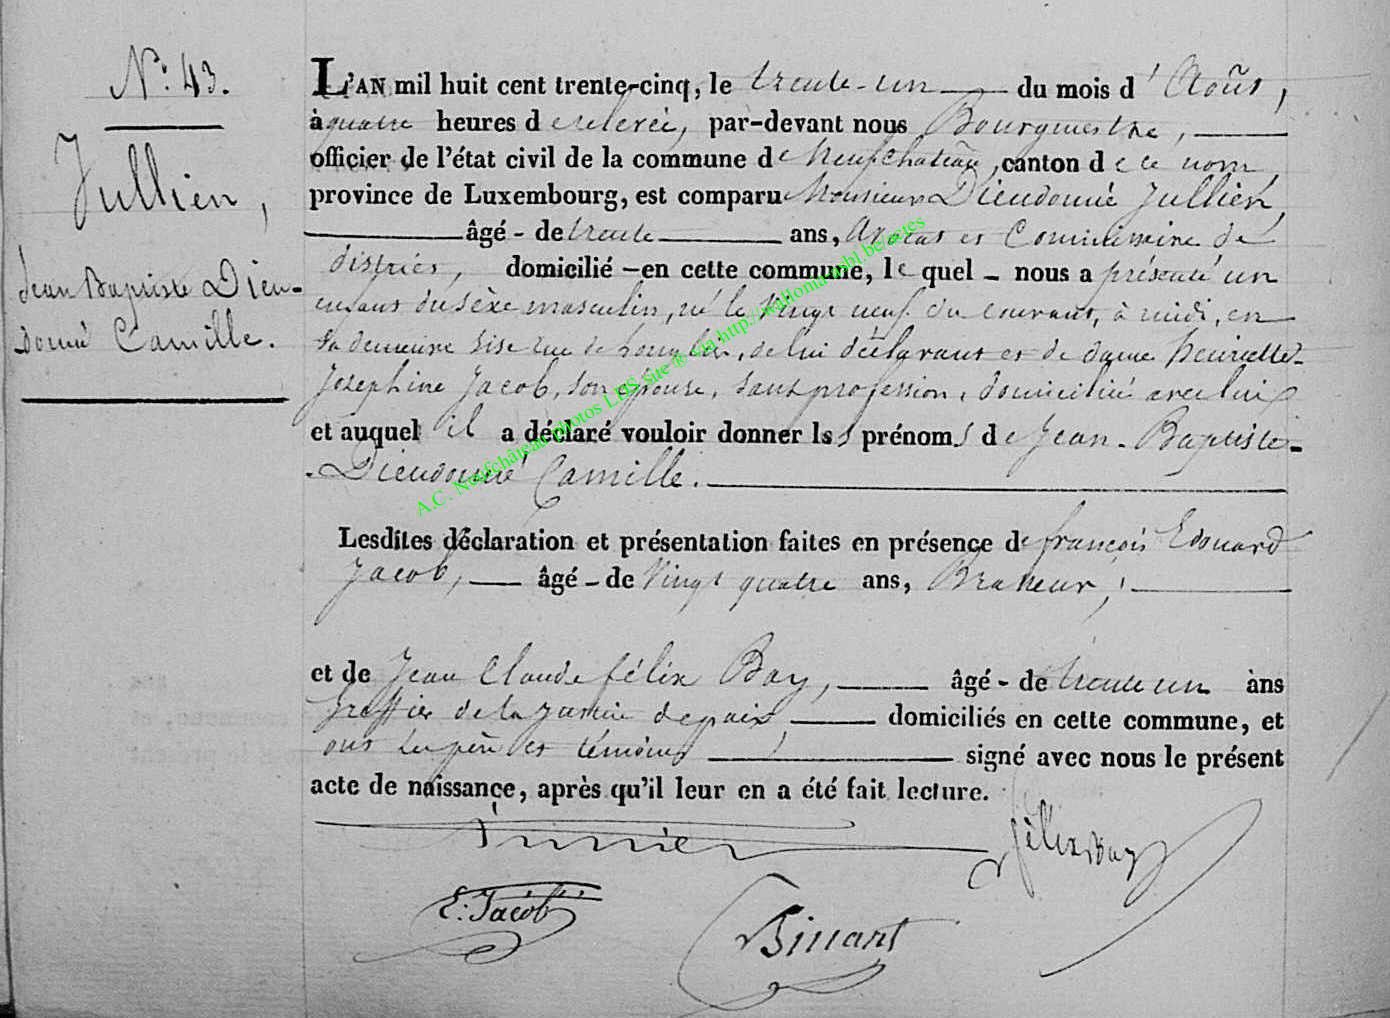 N.º 43.
Jullien,
Jean Baptiste Dieu-
donné Camille.
L'AN mil huit cent trente-cinq, le trente-un du mois d'Août,
à quatre heures de relevée, par-devant nous Bourgmestre,
officier de l'état civil de la commune de Neufchateau, canton de ce nom,
province de Luxembourg, est comparu Monsieur Dieudonné Jullien,
âgé - de trente ans, Avocat et Commissaire de
district, domicilié - en cette commune, le quel - nous a présenté un
enfant du sèxe masculin, né le vingt neuf du courant, à midi, en
sa demeure sise rue de, de lui déclarant et de dame henriette-
Josephine Jacob, son épouse, sans profession, domiciliée avec lui
et auquel il a déclaré vouloir donner les prénoms de Jean-Baptiste-
Dieudonné Camille.
Lesdites déclaration et présentation faites en présence de françois Edouard
Jacob, âgé - de Vingt quatre ans, Brasseur,
et de Jean Claude félix Bay, âgé - de trente un ans
Greffier de la justice de paix domiciliés en cette commune, et
ont les père et témoins signé avec nous le présent
acte de naissance, après qu'il leur en a été fait lecture.
Jullien
félix Bay
E. Jacob
Binart
A.C. Neufchâteau photos LDS site ® via http://wallonia-mbl.be/actes